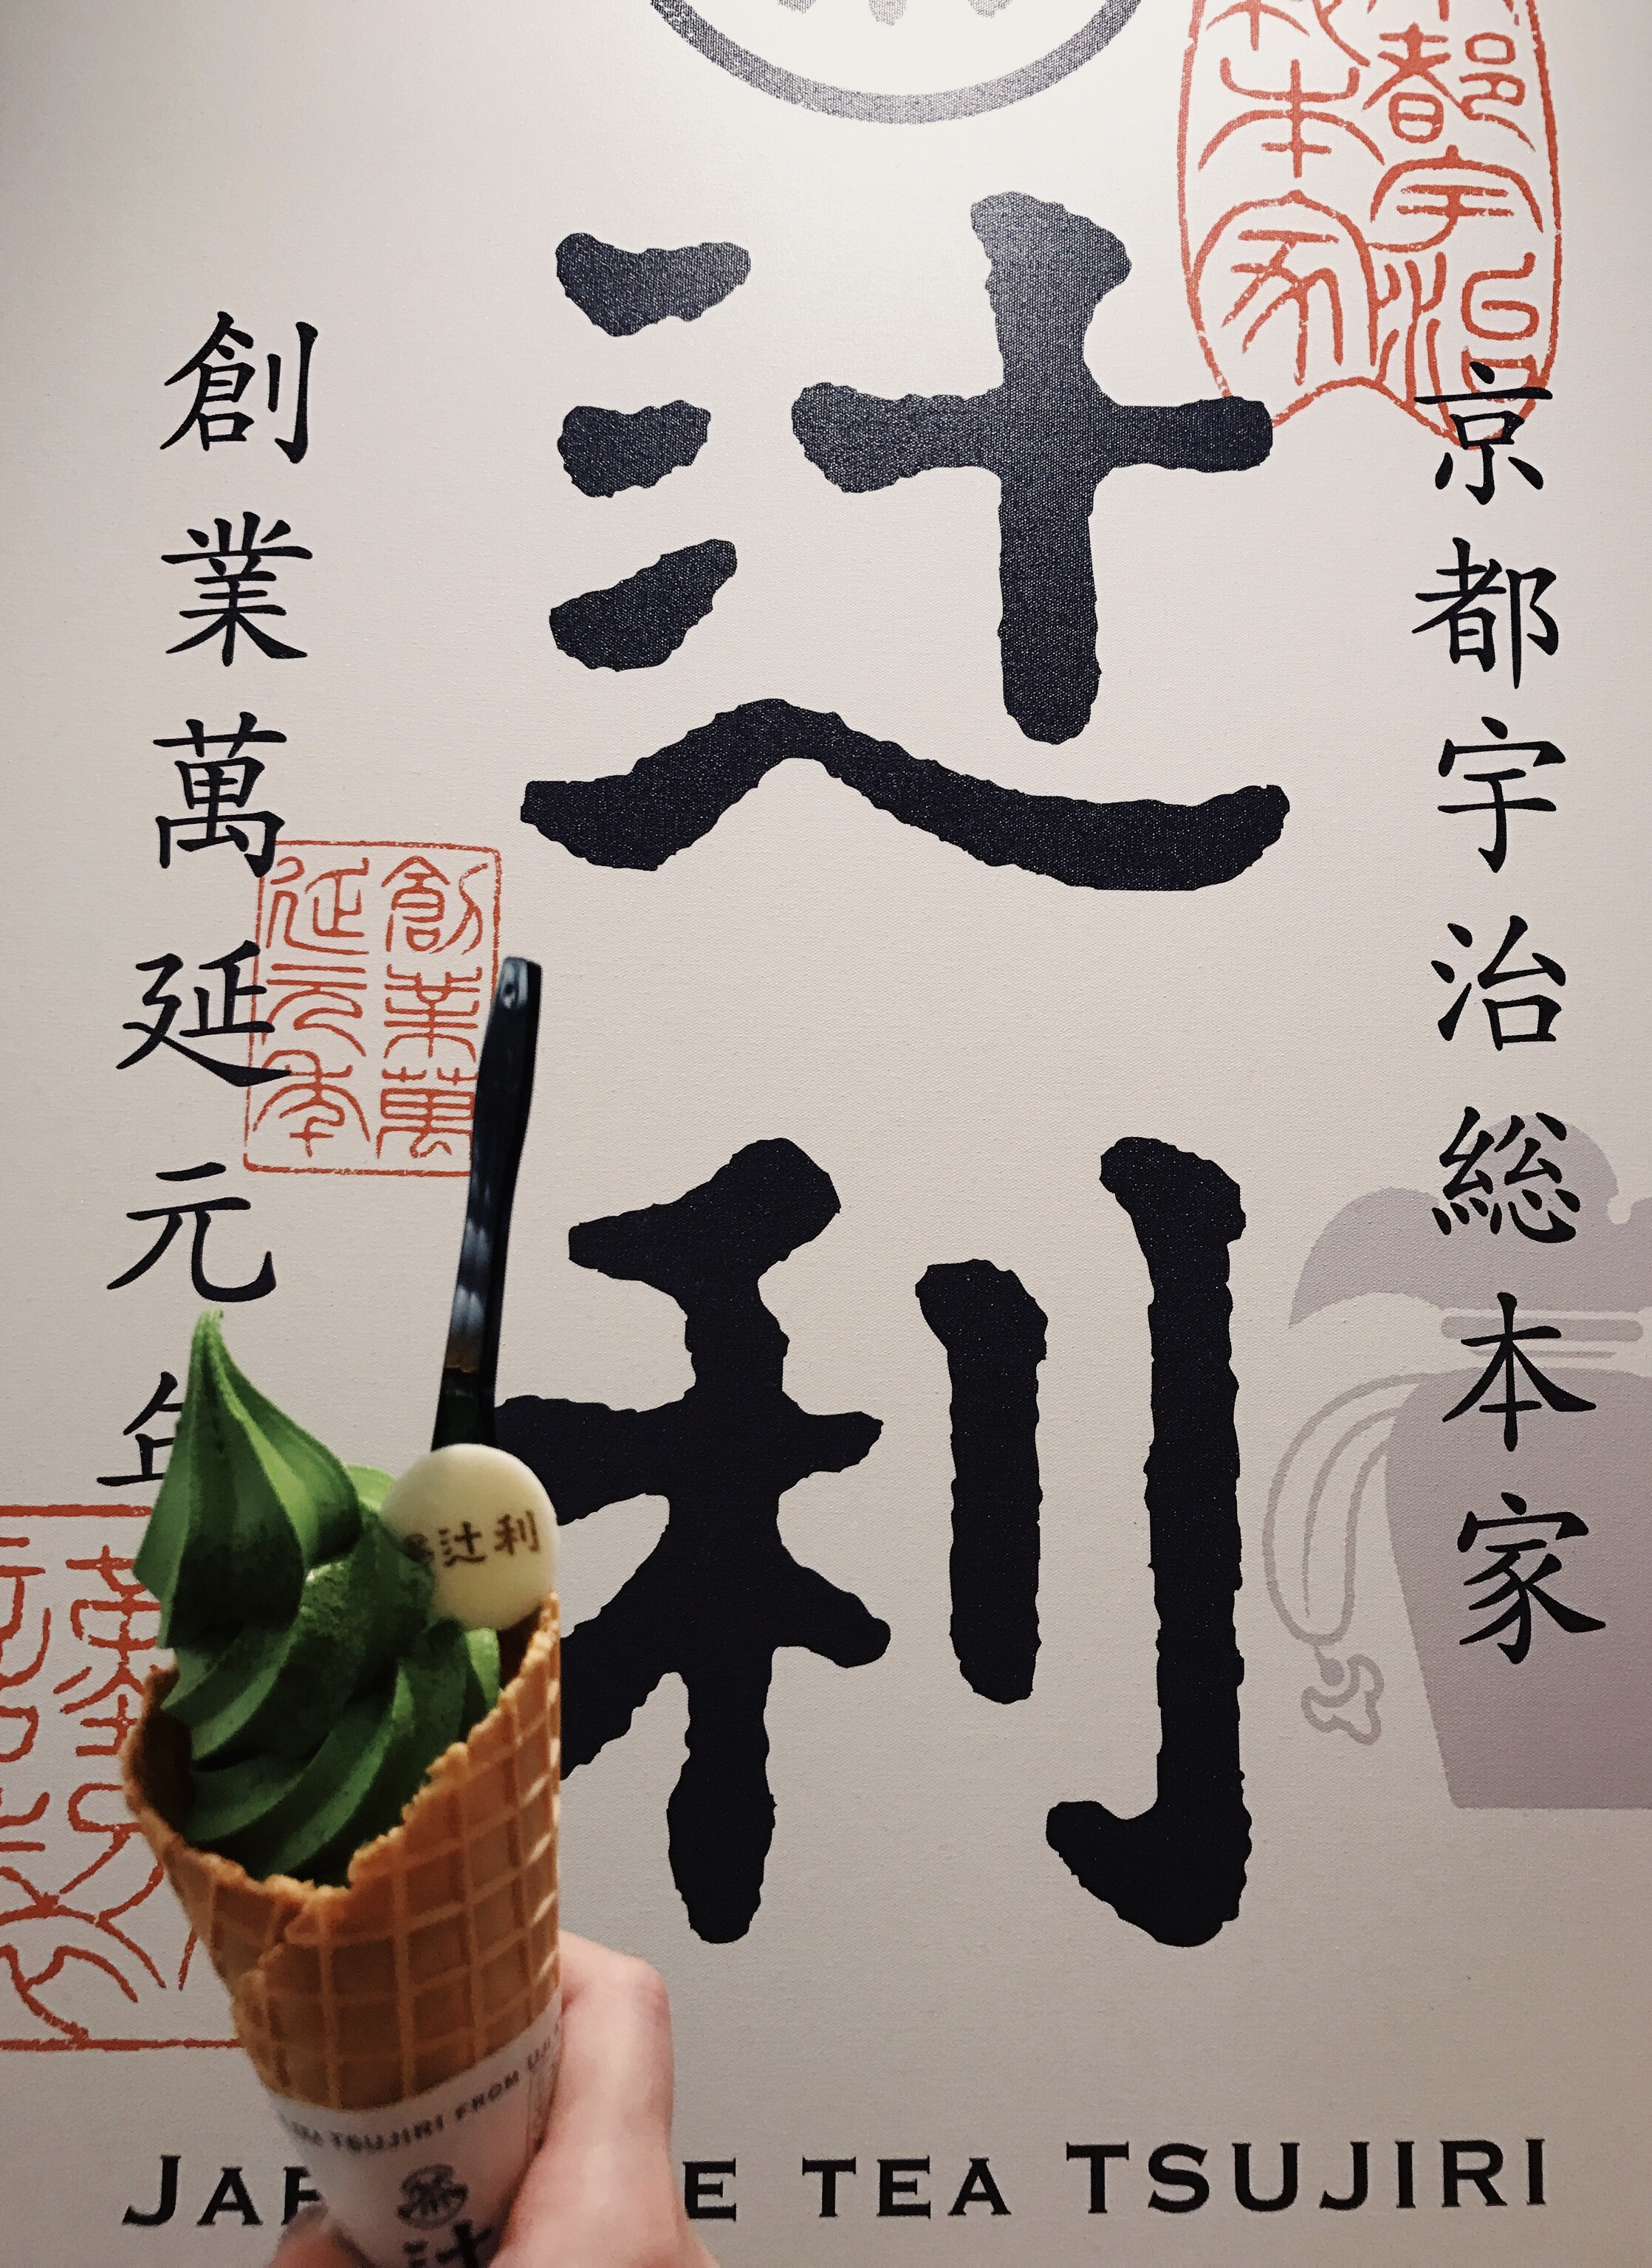 京都宇治総本家
辻利
創業萬延元年
京都宇治
総本家
創業萬
延元年
辻利
TSUJIRI FROM UJI
辻
E TEA TSUJIRI